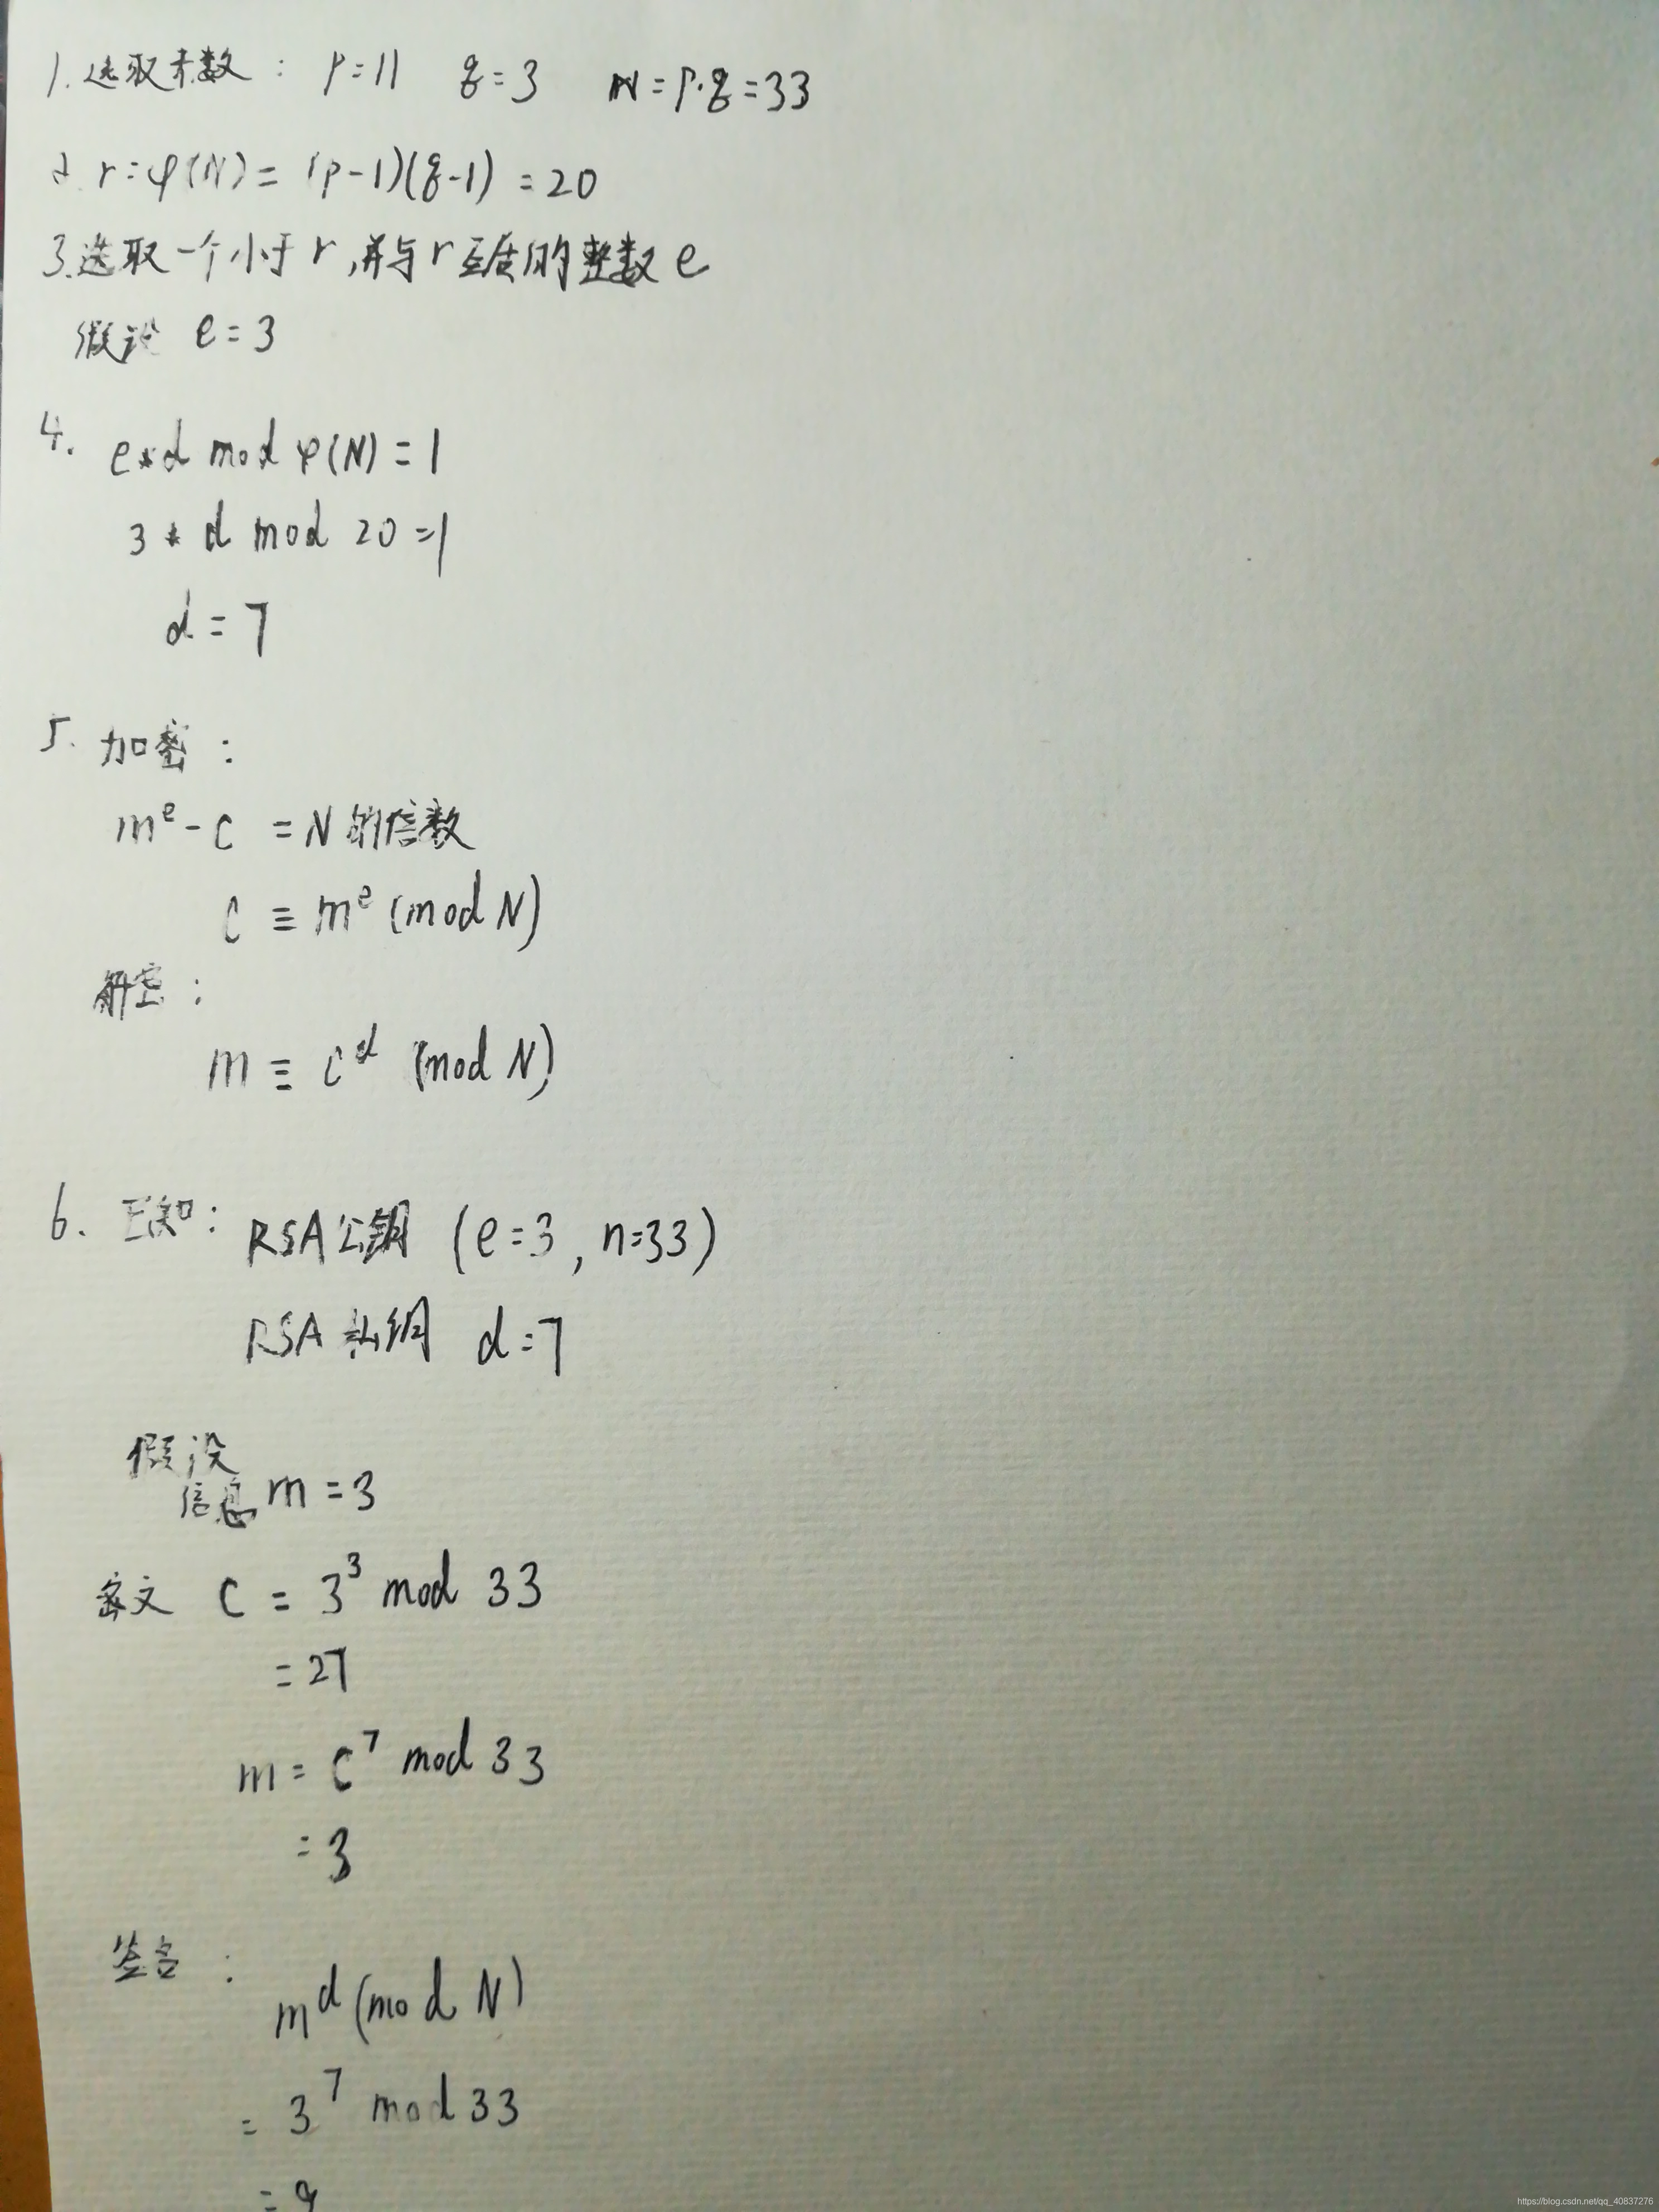 1. 选取素数： p=11 q=3 N=p·q=33
2. r=φ(N)=(p-1)(q-1)=20
3. 选取一个小于r,并与r互质的整数e
假设 e=3
4. e*d mod φ(N)=1
3*d mod 20=1
d=7
5. 加密：
mᵉ-c =N的倍数
C≡mᵉ(mod N)
解密：
m≡cᵈ (mod N)
6. 已知： RSA公钥 (e=3, n=33)
RSA私钥 d=7
假设
信息 m=3
密文 C = 3³ mod 33
=27
m= C⁷ mod 33
=3
签名：
mᵈ(mod N)
= 3⁷ mod 33
=9
https://blog.csdn.net/qq_40837276